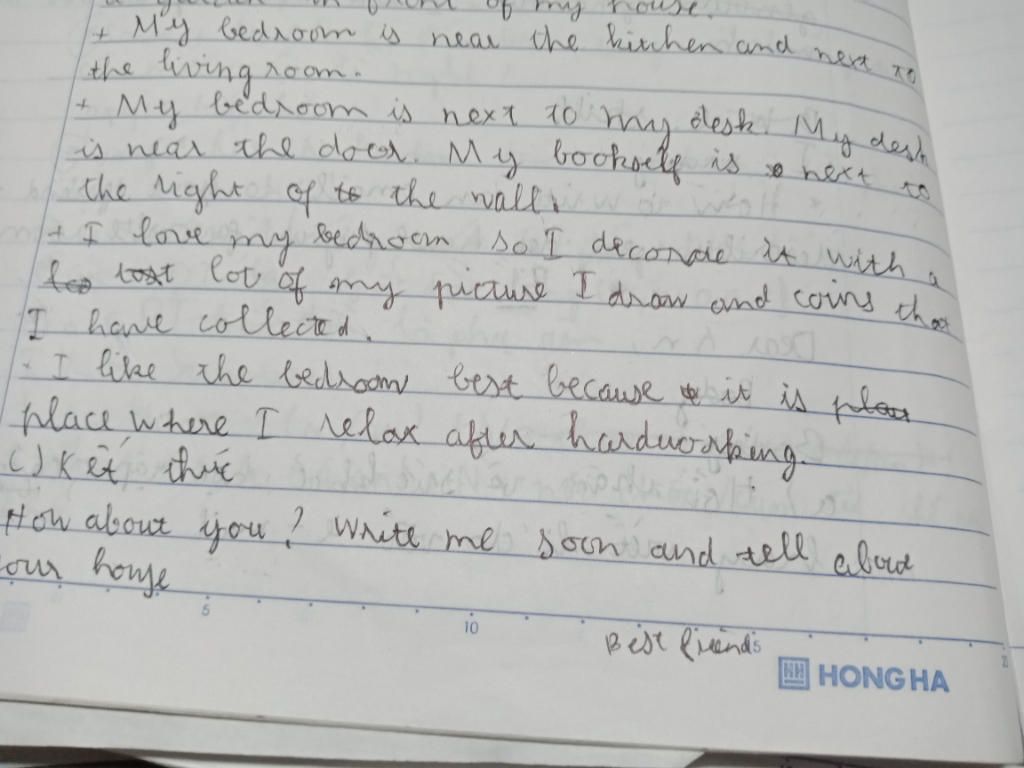 in front of my house.
+ My bedroom is near the kitchen and next to
the living room.
+ My bedroom is next to my desk. My desk
is near the door. My bookself is next to
the right of to the wall.
+ I love my bedroom so I decorate it with a
lot of my picture I draw and coins that
I have collected.
- I like the bedroom best because it is
place where I relax after hardworking.
c) Kết thúc
How about you? Write me soon and tell about
your house
5
10
Best friends
HONG HA